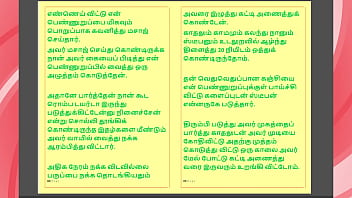 எண்ணெய் விட்டு என்
பெண்ணுறுப்பை மிகவும்
பொறுப்பாக கவனித்து மசாஜ்
செய்தார்.
அவர் மசாஜ் செய்து கொண்டிருக்க
நான் அவர் கையைப் பிடித்து என்
பெண்ணுறுப்பில் வைத்து ஒரு
அழுத்தம் கொடுத்தேன்.
அதானே பார்த்தேன் நான் கூட
ரொம்ப டயர்டா இருந்து
படுத்துக்கிட்டேன்னு நினைச்சேன்
என்று சொல்லி தூங்கிக்
கொண்டிருந்த இதழ்களை மீண்டும்
அவர் வாயில் வைத்து நக்க
ஆரம்பித்து விட்டார்.
அதிக நேரம் நக்க விடவில்லை
பருப்பை நக்க தொடங்கியதும்
அவரை இழுத்து கட்டி அணைத்துக்
கொண்டேன்.
காதலும் காமமும் கலந்து நானும்
ஸ்டீபனும் உடலுறவில் ஆழ்ந்து
திளைத்து 20 நிமிடம் ஒத்துக்
கொண்டிருந்தோம்.
தன் வெதுவெதுப்பான கஞ்சியை
என் பெண்ணுறுப்புக்குள் பாய்ச்சி
விட்டு களைப்புடன் ஸ்டீபன்
என்னருகே படுத்தார்.
திரும்பி படுத்து அவர் முகத்தைப்
பார்த்து காதலுடன் அவர் முடியை
கோதிவிட்டு அதற்கு முத்தம்
கொடுத்து விட்டு ஒரு காலை அவர்
மேல் போட்டு கட்டி அணைத்து
வரை இருவரும் உறங்கி விட்டோம்.